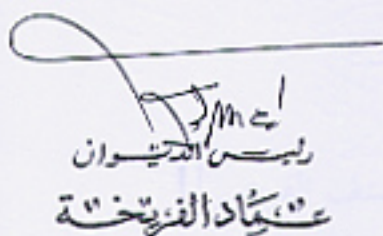 رئيس الديوان
عماد الفريخة